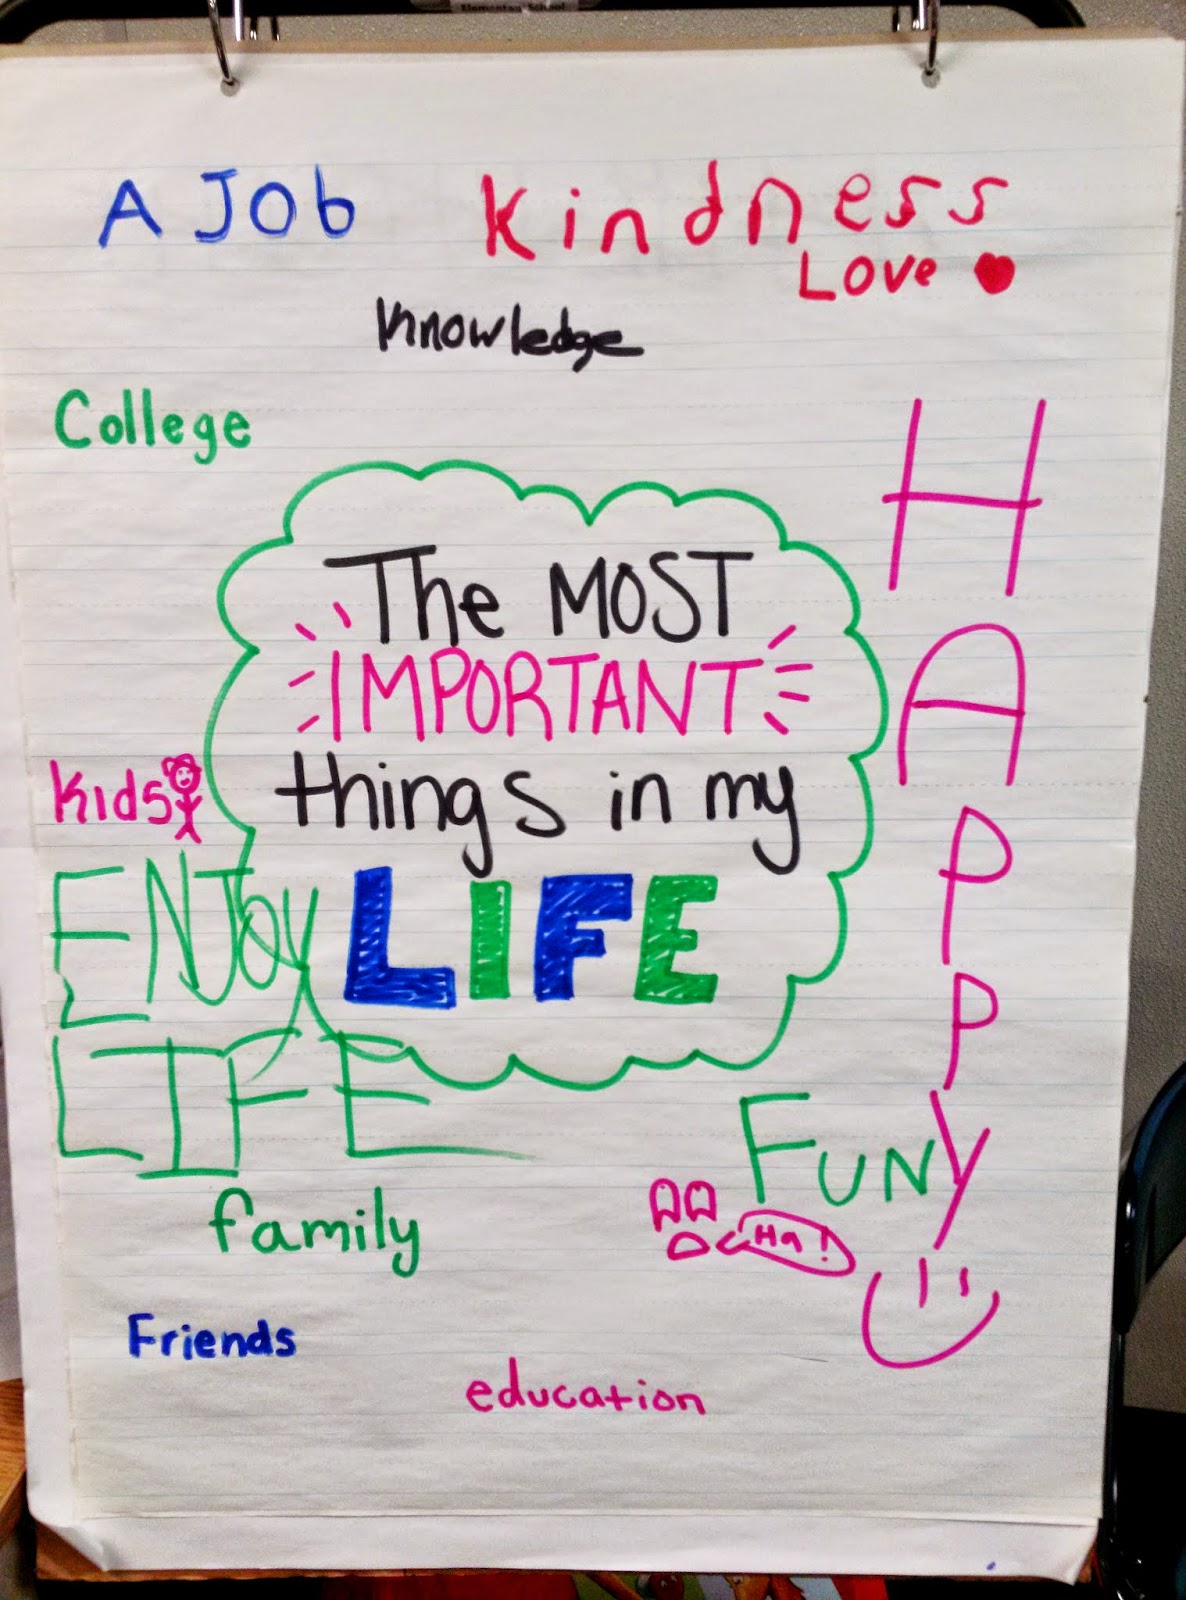 Elementary School
A JOb
Kindness
Love
Knowledge
College
The MOST
IMPORTANT
things in my
LIFE
HAPPY
Kids
ENJOY
LIFE
FUNY
Ha!
family
Friends
education